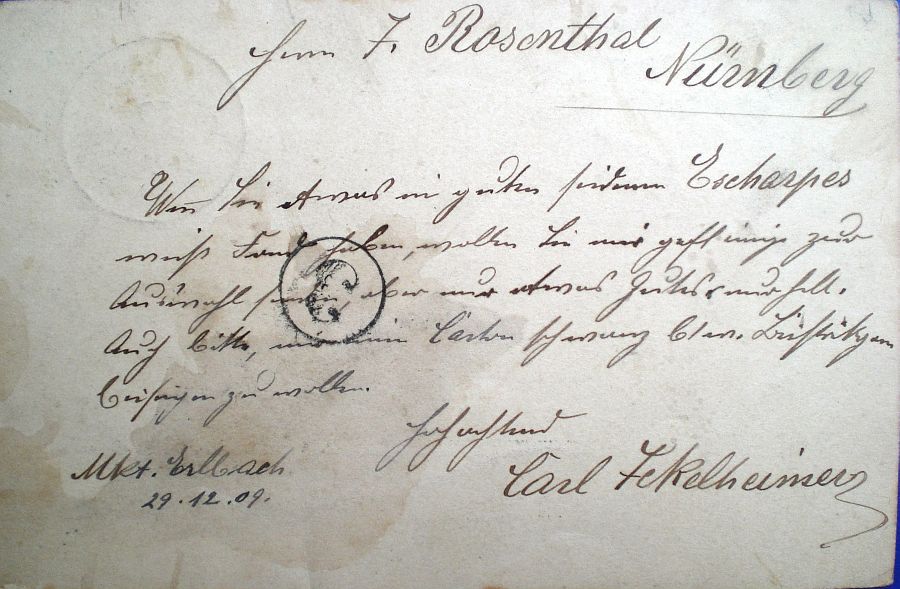 Herrn F. Rosenthal
Nürnberg
Wenn Sie etwas in guten seidenen Escharpes
weiß Fond haben, wollen Sie mir gefl. einige zur
Auswahl senden aber nur etwas Gutes, nur hell.
Auch bitte, mir einen Carton schwarz
beifügen zu wollen.
Hochachtend
Carl Ickelheimer
Mkt. Erlbach
29.12.09.